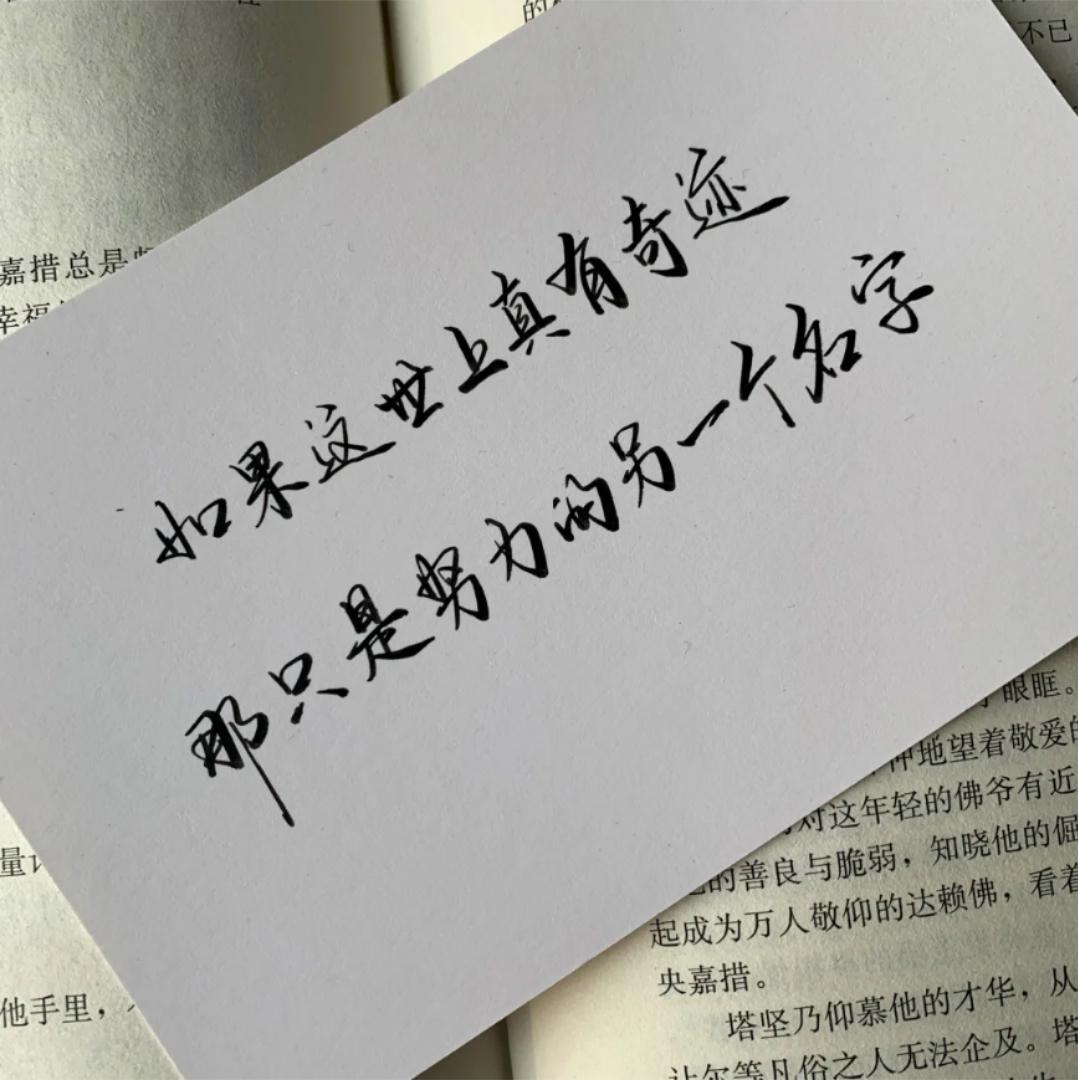 的
不已
嘉措总是
幸福
如果这世上真有奇迹
那只是努力的另一个名字
眼眶。
仲地望着敬爱的
对这年轻的佛爷有近
的善良与脆弱，知晓他的倔
起成为万人敬仰的达赖佛，看着
央嘉措。
塔坚乃仰慕他的才华，从
让尔等凡俗之人无法企及。塔
量
他手里，